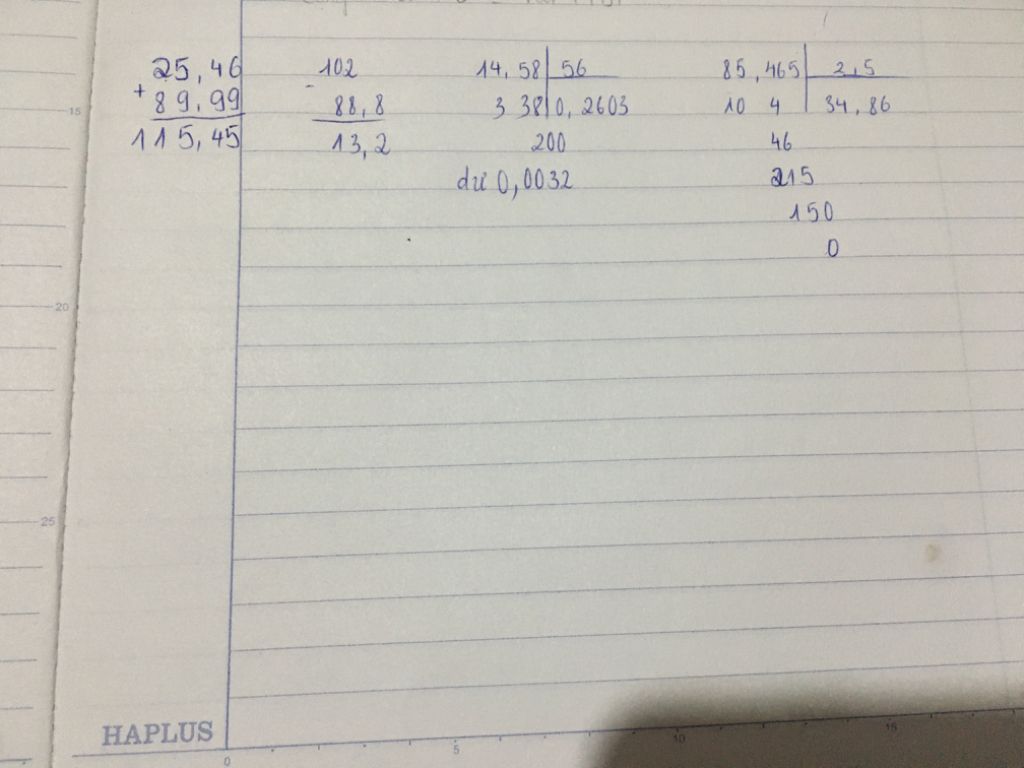 25,46 102 14,58 56 85,465 2,5
+ - 
89,99 88,8 3 38 0,2603 10 4 34,86
115,45 13,2 200 46
dư 0,0032 215
150
0
15
20
25
HAPLUS
0 5 10 15